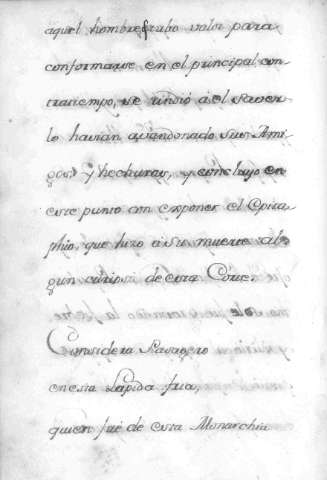 aquel hombre tubo valor para
conformarse en el principal con-
tratiempo, se rindió á el saver
lo havian avandonado sus Ami-
gos, y hechuras, y concluyo en
este punto con exponer el Epita-
phio, que hizo á su muerte al-
gun curioso de esta Corte.
Considera Pasagero
en esta Lapida fria,
quien fué de esta Monarchia